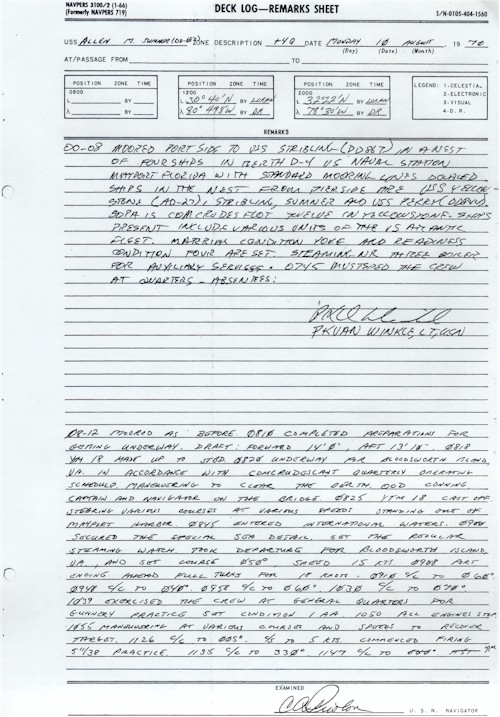 NAVPERS 3100/2 (1-66)
(Formerly NAVPERS 719)
DECK LOG—REMARKS SHEET
S/N-0105-404-1560
USS ALLEN M. SUMNER (DD-692) ZONE DESCRIPTION +4Q DATE MONDAY 10 AUGUST 19 70
(Day) (Date) (Month)
AT/PASSAGE FROM TO
POSITION ZONE TIME
0800
L BY
λ BY
POSITION ZONE TIME
1200
L 30° 40' N BY LORAN
λ 80° 49.8' W BY DR
POSITION ZONE TIME
2000
L 32°22' N BY LORAN
λ 79° 30' W BY DR
LEGEND: 1-CELESTIAL
2-ELECTRONIC
3-VISUAL
4-D.R.
REMARKS
00-08 MOORED PORT SIDE TO USS STRIBLING (DD867) IN A NEST
OF FOUR SHIPS IN BERTH D-4 US NAVAL STATION
MAYPORT FLORIDA WITH STANDARD MOORING LINES DOUBLED.
SHIPS IN THE NEST FROM PIERSIDE ARE USS YELLOW-
STONE (AD-27), STRIBLING, SUMNER AND USS PERRY
SOPA IS COMCRUDESFLOT TWELVE IN YELLOWSTONE. SHIPS
PRESENT INCLUDE VARIOUS UNITS OF THE US ATLANTIC
FLEET. MATERIAL CONDITION YOKE AND READINESS
CONDITION FOUR ARE SET. STEAMING NR THREE BOILER
FOR AUXILIARY SERVICES. 0745 MUSTERED THE CREW
AT QUARTERS - ABSENTEES:
P.K. VAN WINKLE, LT, USN
08-12 MOORED AS BEFORE 0810 COMPLETED PREPARATIONS FOR
GETTING UNDERWAY. DRAFT: FORWARD 14'0" AFT 13'10" 0818
YTM 18 MADE UP TO STBD 0820 UNDERWAY FOR BLOODSWORTH ISLAND,
VA. IN ACCORDANCE WITH COMCRUDESLANT QUARTERLY OPERATING
SCHEDULE. MANEUVERING TO CLEAR THE BERTH. OOD CONNING,
CAPTAIN AND NAVIGATOR ON THE BRIDGE. 0825 YTM 18 CAST OFF.
STEERING VARIOUS COURSES AT VARIOUS SPEEDS STANDING OUT OF
MAYPORT HARBOR. 0845 ENTERED INTERNATIONAL WATERS. 0900
SECURED THE SPECIAL SEA DETAIL. SET THE REGULAR
STEAMING WATCH. TOOK DEPARTURE FOR BLOODSWORTH ISLAND,
VA., AND SET COURSE 050° SPEED 15 KTS. 0908 PORT
ENGINE AHEAD FULL TURNS FOR 18 KNOTS. 0910 C/C TO 060°.
0948 C/C TO 040°. 0958 C/C TO 060°. 1030 C/C TO 070°
1039 EXERCISED THE CREW AT GENERAL QUARTERS FOR
GUNNERY PRACTICE SET CONDITION 1 AA 1050 ALL ENGINES STOP.
1055 MANEUVERING AT VARIOUS COURSES AND SPEEDS TO RECOVER
TARGET. 1126 C/C TO 005°. C/S TO 5 KTS. COMMENCED FIRING
5"/38 PRACTICE. 1135 C/C TO 330° 1147 C/C TO 000°
EXAMINED
U. S. N. NAVIGATOR